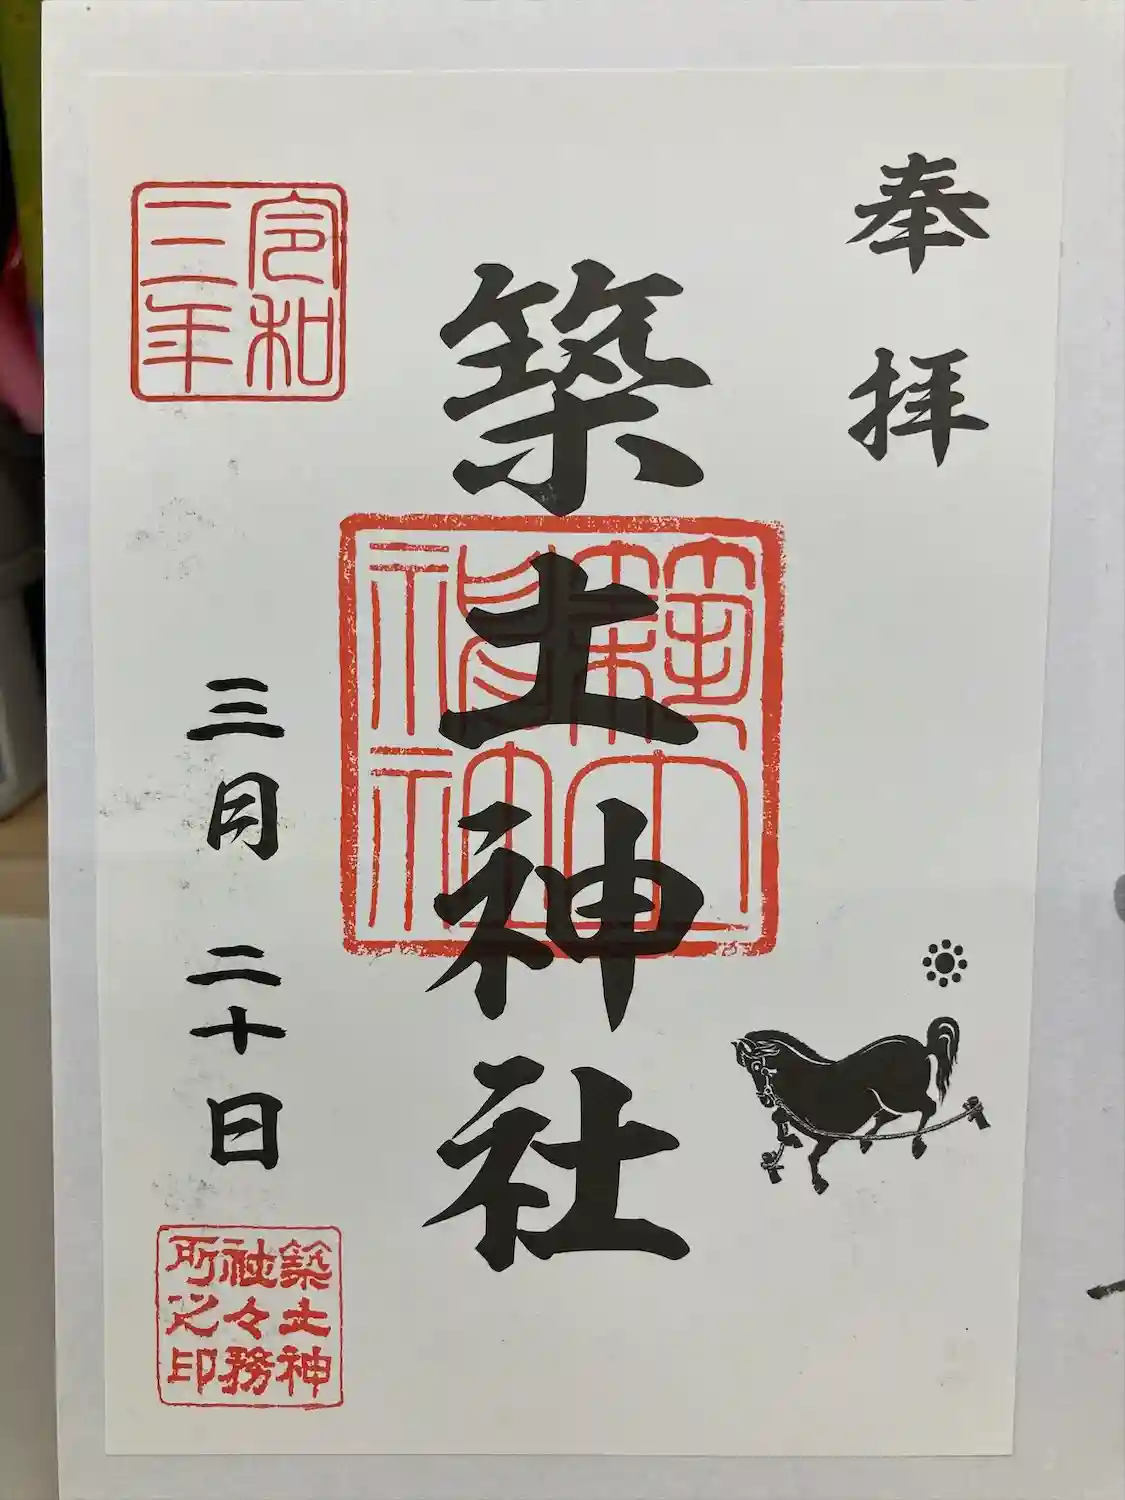 奉拝
築土神社
築土神社
令和三年
三月二十日
築土神社々務所之印